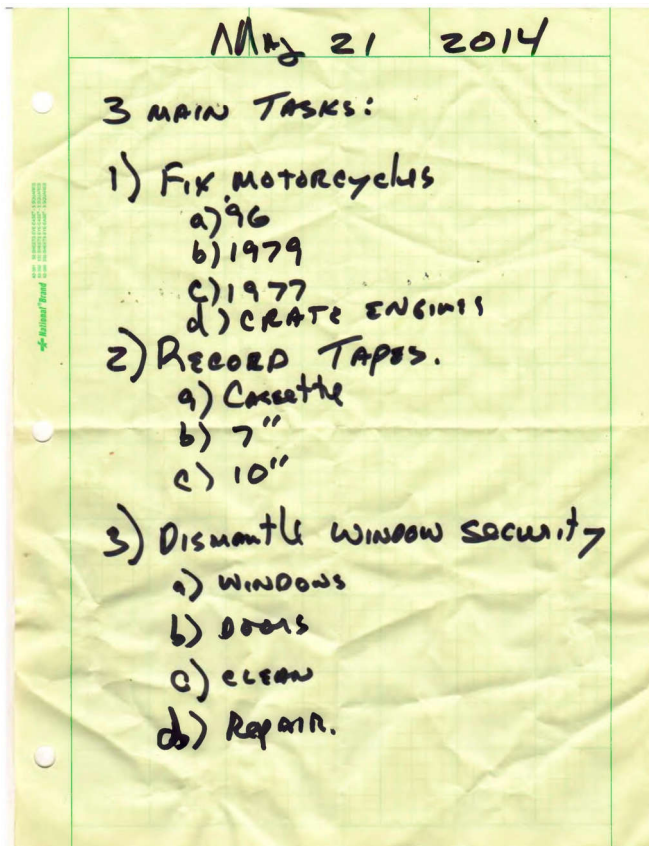 May 21 2014
3 MAIN TASKS:
1) FIX MOTORCYCLES
a) '96
b) 1979
c) 1977
d) CRATE ENGINES
2) RECORD TAPES.
a) Cassette
b) 7"
c) 10"
3) DISMANTLE WINDOW SECURITY
a) WINDOWS
b) DOORS
c) CLEAN
d) REPAIR.
National® Brand